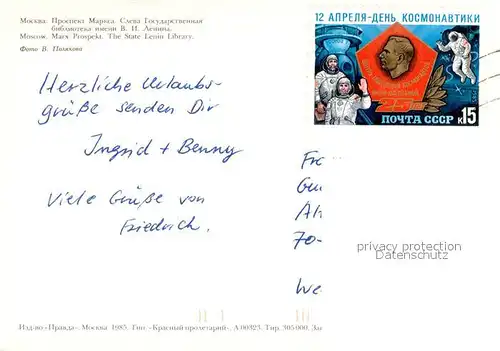 Москва. Проспект Маркса. Слева Государственная
библиотека имени В. И. Ленина.
Moscow. Marx Prospekt. The State Lenin Library.
Фото В. Полякова
Herzliche Urlaubs-
grüße senden Dir
Ingrid + Benny
Viele Grüße von
Friedrich.
12 АПРЕЛЯ-ДЕНЬ КОСМОНАВТИКИ
ПОЧТА СССР К15
Fr
Gu
Al
70-
We
privacy protection
Datenschutz
Изд-во «Правда». Москва 1985. Тип. «Красный пролетарий». А 00323. Тир. 305 000. За